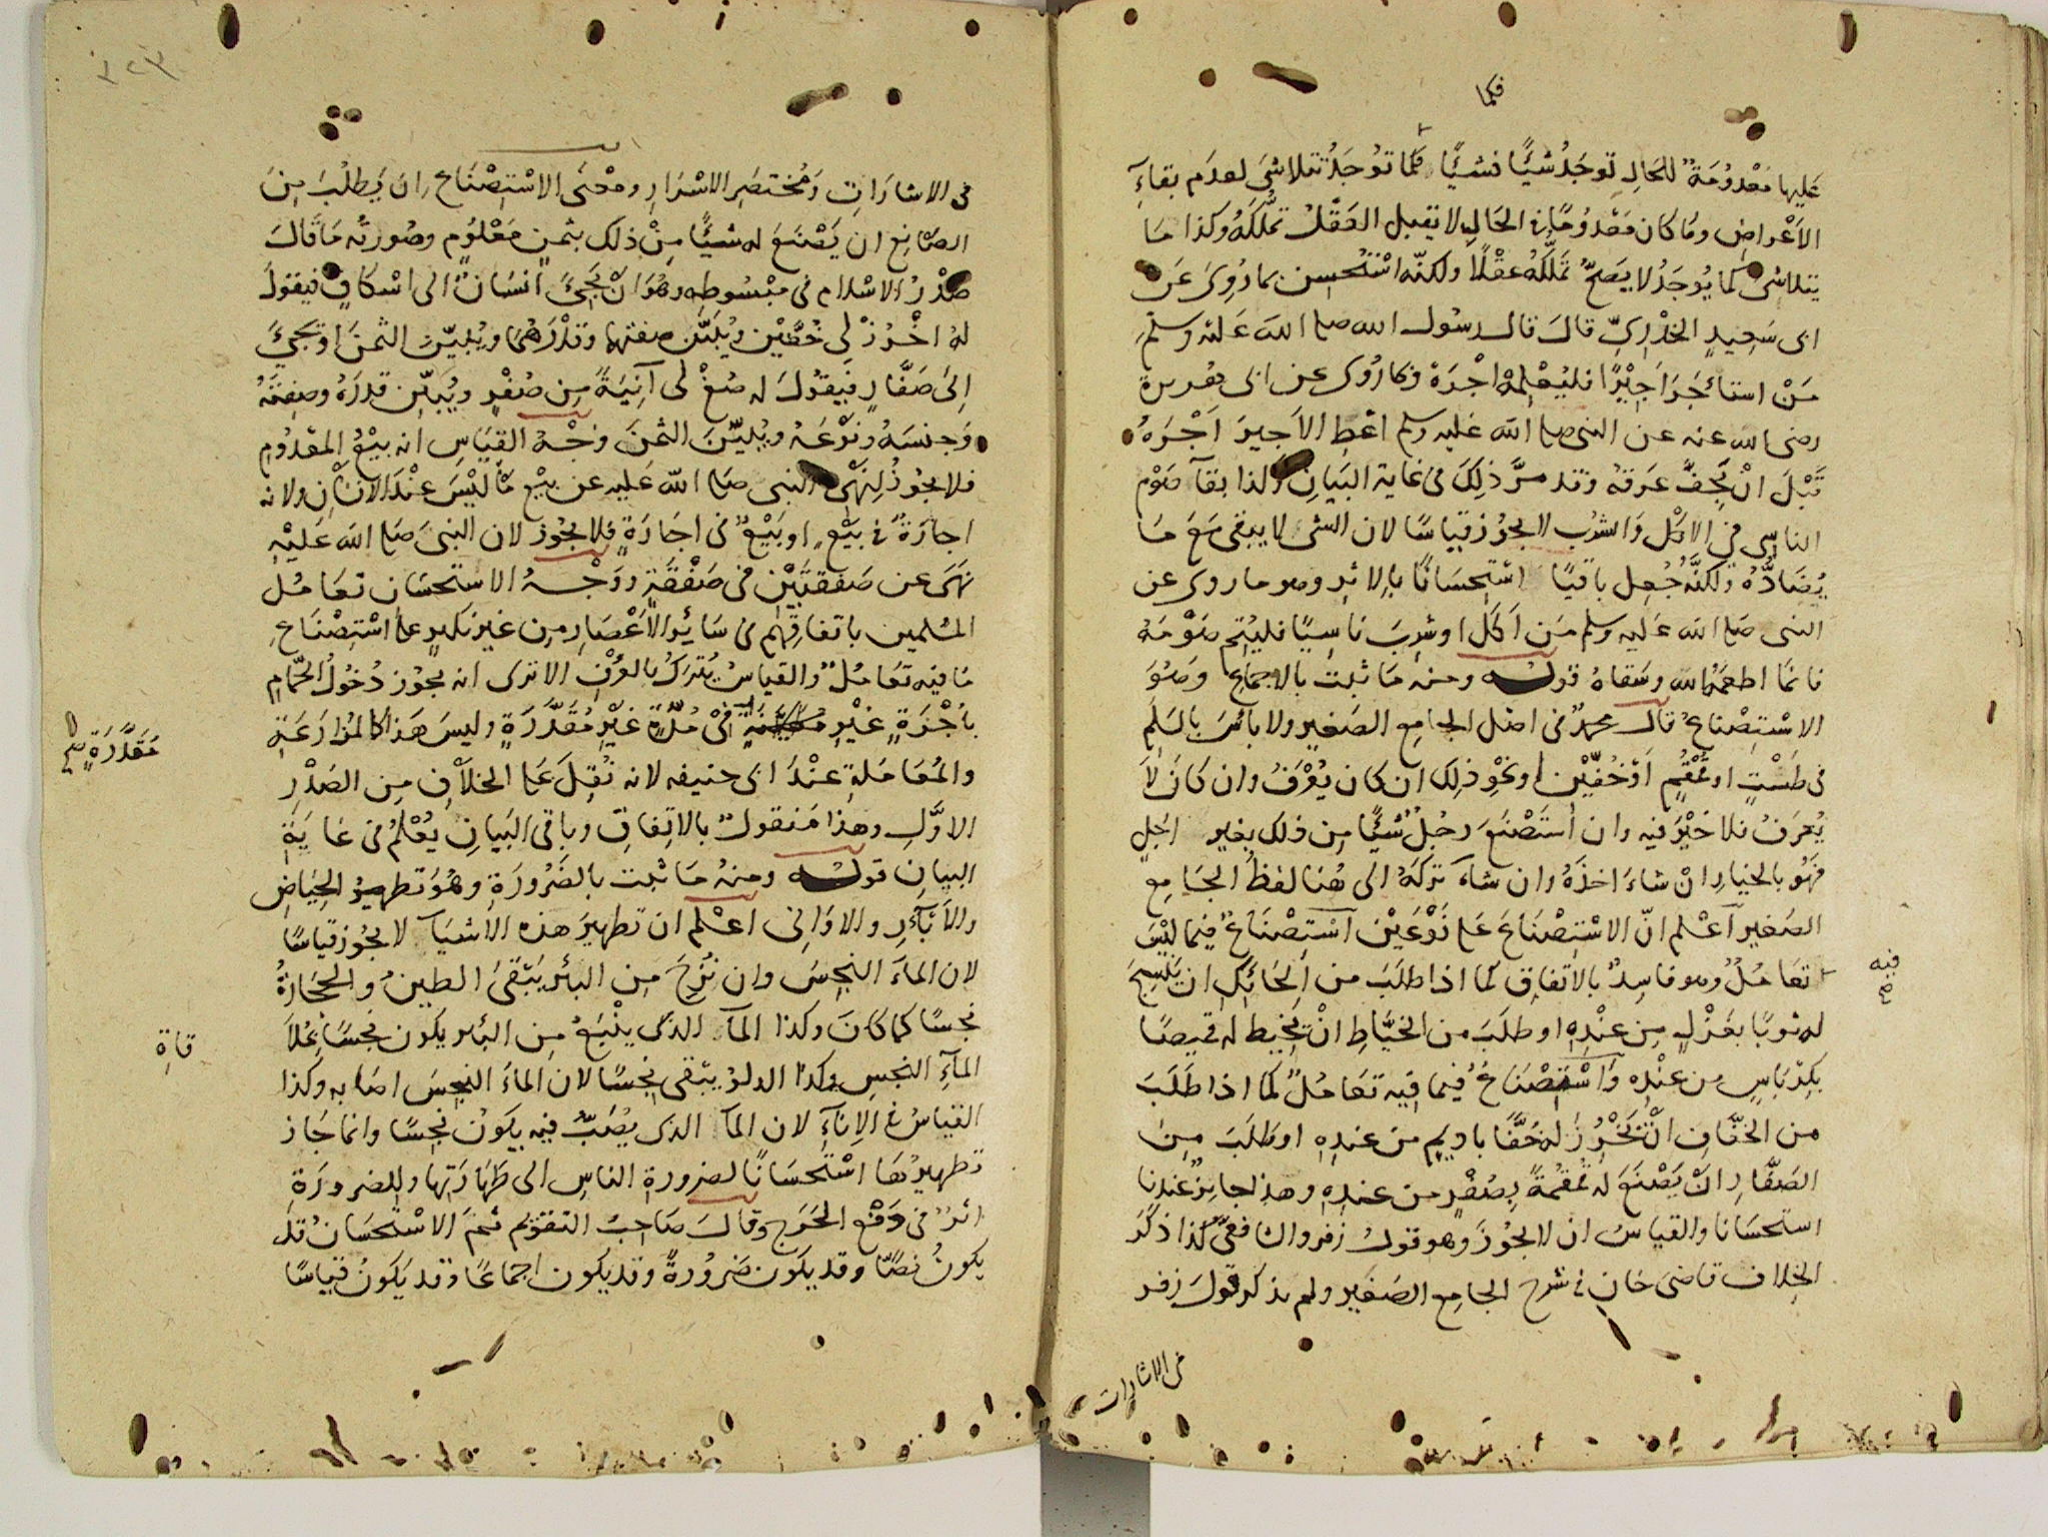 فكما
عليها معدومة للحال توجد شيئا فشيئا فكما توجد تتلاشى لعدم بقاء
الاعراض وما كان معدوما في الحال لا يقبل العقل تملكه وكذا ما
يتلاشى كما يوجد لا يصح تملكه عقلا ولكنه استحسن بما روى عن
ابى سعيد الخدرى قال قال رسول الله صلى الله عليه وسلم
من استأجر اجيرا فليعلمه اجره وبما روى عن ابى هريرة
رضى الله عنه عن النبى صلى الله عليه وسلم اعط الاجير اجره
قبل ان يجف عرقه وقد مر ذلك في غاية البيان وكذا بقاء صوم
الناسى في الاكل والشرب لا يجوز قياسا لان الشئ لا يبقى مع ما
يضاده ولكنه جعل باقيا استحسانا بالاثر وهو ما روى عن
النبى صلى الله عليه وسلم من اكل او شرب ناسيا فليتم صومه
فانما اطعمه الله وسقاه قوله ومنه ما ثبت بالاجماع وهو
الاستصناع قال محمد في اصل الجامع الصغير ولا بأس بالسلم
في طست او قمقم او خفين او نحو ذلك ان كان يعرف وان كان لا
يعرف فلا خير فيه وان استصنع رجل شيئا من ذلك بغير اجل
فهو بالخيار ان شاء اخذه وان شاء تركه الى هنا لفظ الجامع
الصغير اعلم ان الاستصناع على نوعين استصناع فيما ليس
فيه صح
تعامل وهو فاسد بالاتفاق كما اذا طلب من الحائك ان ينسج
له ثوبا بغزل من عنده او طلب من الخياط ان يخيط له قميصا
بكرباس من عنده واستصناع فيما فيه تعامل كما اذا طلب
من الخفاف ان يخرز له خفا باديم من عنده او طلب من
الصفار ان يصنع له قمقمة بصفر من عنده وهذا جائز عندنا
استحسانا والقياس ان لا يجوز وهو قول زفر والشافعى كذا ذكر
الخلاف قاضى خان في شرح الجامع الصغير ولم يذكر قول زفر
في الاشارات
٤٢٣
في الاشارات ومختصر الاسرار ومعنى الاستصناع ان يطلب من
الصانع ان يصنع له شيئا من ذلك بثمن معلوم وصورته ما قال
صدر الاسلام في مبسوطه وهو ان يجئ انسان الى اسكاف فيقول
له اخرز لى خفين ويبين صفتهما وقدرهما ويبين الثمن او يجئ
الى صفار فيقول له صغ لى آنية من صفر ويبين قدره وصفته
وجنسه ونوعه ويبين الثمن وجه القياس انه بيع المعدوم
فلا يجوز لنهى النبى صلى الله عليه عن بيع ما ليس عند الانسان ولانه
اجارة في بيع او بيع في اجارة فلا يجوز لان النبى صلى الله عليه
نهى عن صفقتين في صفقة ووجه الاستحسان تعامل
المسلمين باتفاقهم في سائر الاعصار من غير نكير على استصناع
ما فيه تعامل والقياس يترك بالعرف الا ترى انه يجوز دخول الحمام
باجرة غير مقدرة في مدة غير مقدرة وليس هذا كالمزارعة
مقدرة صح
والمعاملة عند ابى حنيفه لانه نقل على الخلاف من الصدر
الاول وهذا منقول بالاتفاق وباقى البيان يعلم في غاية
البيان قوله ومنه ما ثبت بالضرورة وهو تطهير الحياض
والآبار والاوانى اعلم ان تطهير هذه الاشياء لا يجوز قياسا
لان الماء النجس وان نزح من البئر يبقى الطين والحجارة
نجسا كما كان وكذا الماء الذى ينبع من البئر يكون نجسا
الماء النجس وكذا الدلو يبقى نجسا لان الماء النجس اصابه وكذا
القياس في الاناء لان الماء الذى يصب فيه يكون نجسا وانما جاز
تطهيرها استحسانا لضرورة الناس الى طهارتها وللضرورة
اثر في دفع الحرج وقال صاحب التقويم ثم الاستحسان قد
يكون نصا وقد يكون ضرورة وقد يكون اجماعا وقد يكون قياسا